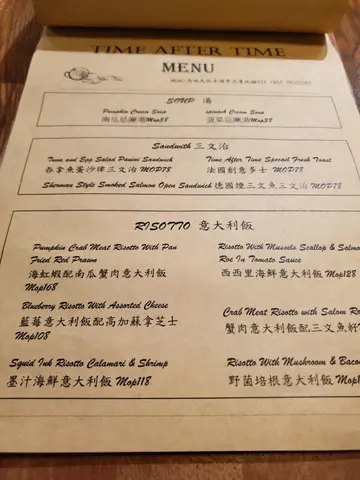 TIME AFTER TIME
MENU
SOUP 湯
Pumpkin Cream Soup
南瓜忌廉湯Mop38
spinach Cream Soup
菠菜忌廉湯Mop38
Sandwith 三文治
Tuna and Egg Salad Panini Sandwich
吞拿魚蛋沙律三文治 MOP78
Time After Time Specail Fresh Toast
法國創意多士 MOP78
Sherman Style Smoked Salmon Open Sandwich 德國煙三文魚三文治 MOP78
RISOTTO 意大利飯
Pumpkin Crab Meat Risotto With Pan
Fried Red Prawn
海虹蝦配南瓜蟹肉意大利飯
Mop168
Risotto With Mussels Scallop & Salmo
Roe In Tomato Sauce
西西里海鮮意大利飯 Mop128
Blueberry Risotto With Assorted Cheese
藍莓意大利飯配高加蘇拿芝士
Mop108
Crab Meat Risotto with Salom Ro
蟹肉意大利飯配三文魚籽
Squid Ink Risotto Calamari & Shrimp
墨汁海鮮意大利飯 Mop118
Risotto With Mushroom & Baco
野菌培根意大利飯 Mop1